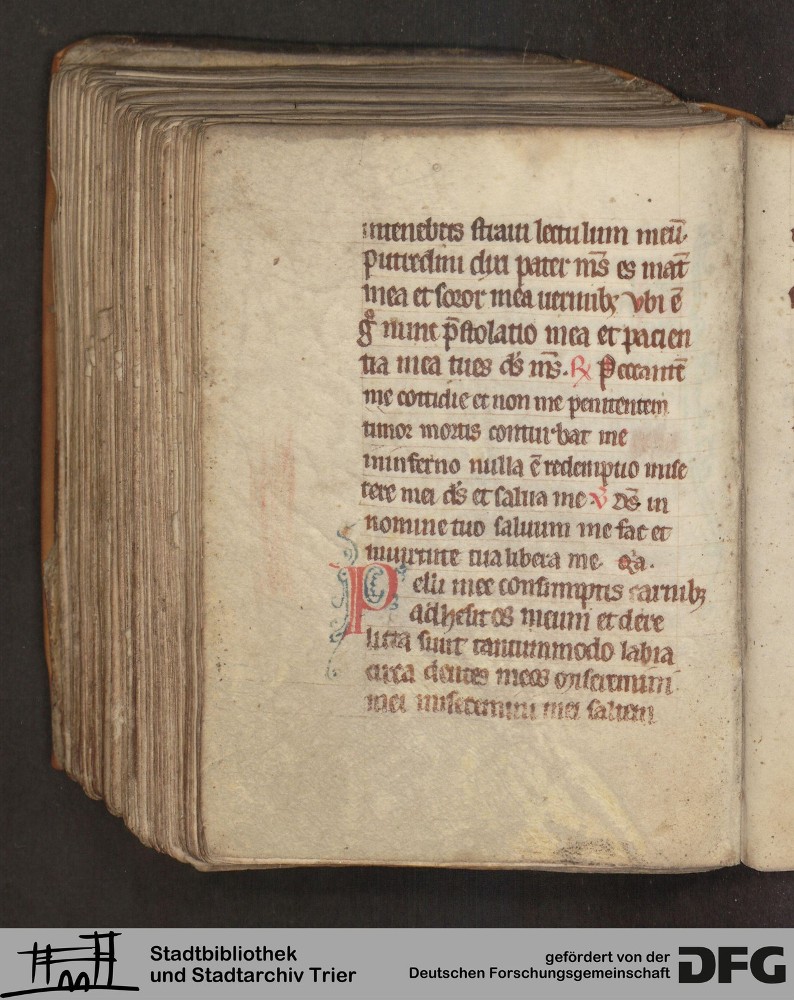 intenebris straui lectulum meū.
Putredini dixi pater m̄s es mat̄
mea et soror mea uermibꝫ vbi ē
gͦ nunc p̄stolatio mea et pacien
tia mea tues d̄s m̄s. ℞ Peccantē
me cottidie et non me penitentem
timor mortis conturbat me
ininferno nulla ē redemptio mise
rere mei d̄s et salua me ℣ D̄s in
nomine tuo saluum me fac et
inuirtute tua libera me.
Pelli mee consumptis carnibꝫ
adhesit os meum et dere
licta sunt tantummodo labia
circa dentes meos miseremini
mei miseremini mei saltem
Stadtbibliothek
und Stadtarchiv Trier
gefördert von der
Deutschen Forschungsgemeinschaft
DFG